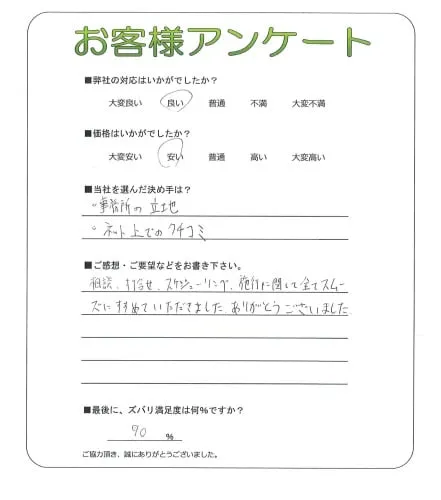 お客様アンケート
■弊社の対応はいかがでしたか？
大変良い 良い 普通 不満 大変不満
■価格はいかがでしたか？
大変安い 安い 普通 高い 大変高い
■当社を選んだ決め手は？
・事務所の立地
・ネット上でのクチコミ
■ご感想・ご要望などをお書き下さい。
相談、打合せ、スケジューリング、施行に関して全てスムー
ズにすすめていただきました。ありがとうございました
■最後に、ズバリ満足度は何％ですか？
90 ％
ご協力頂き、誠にありがとうございました。